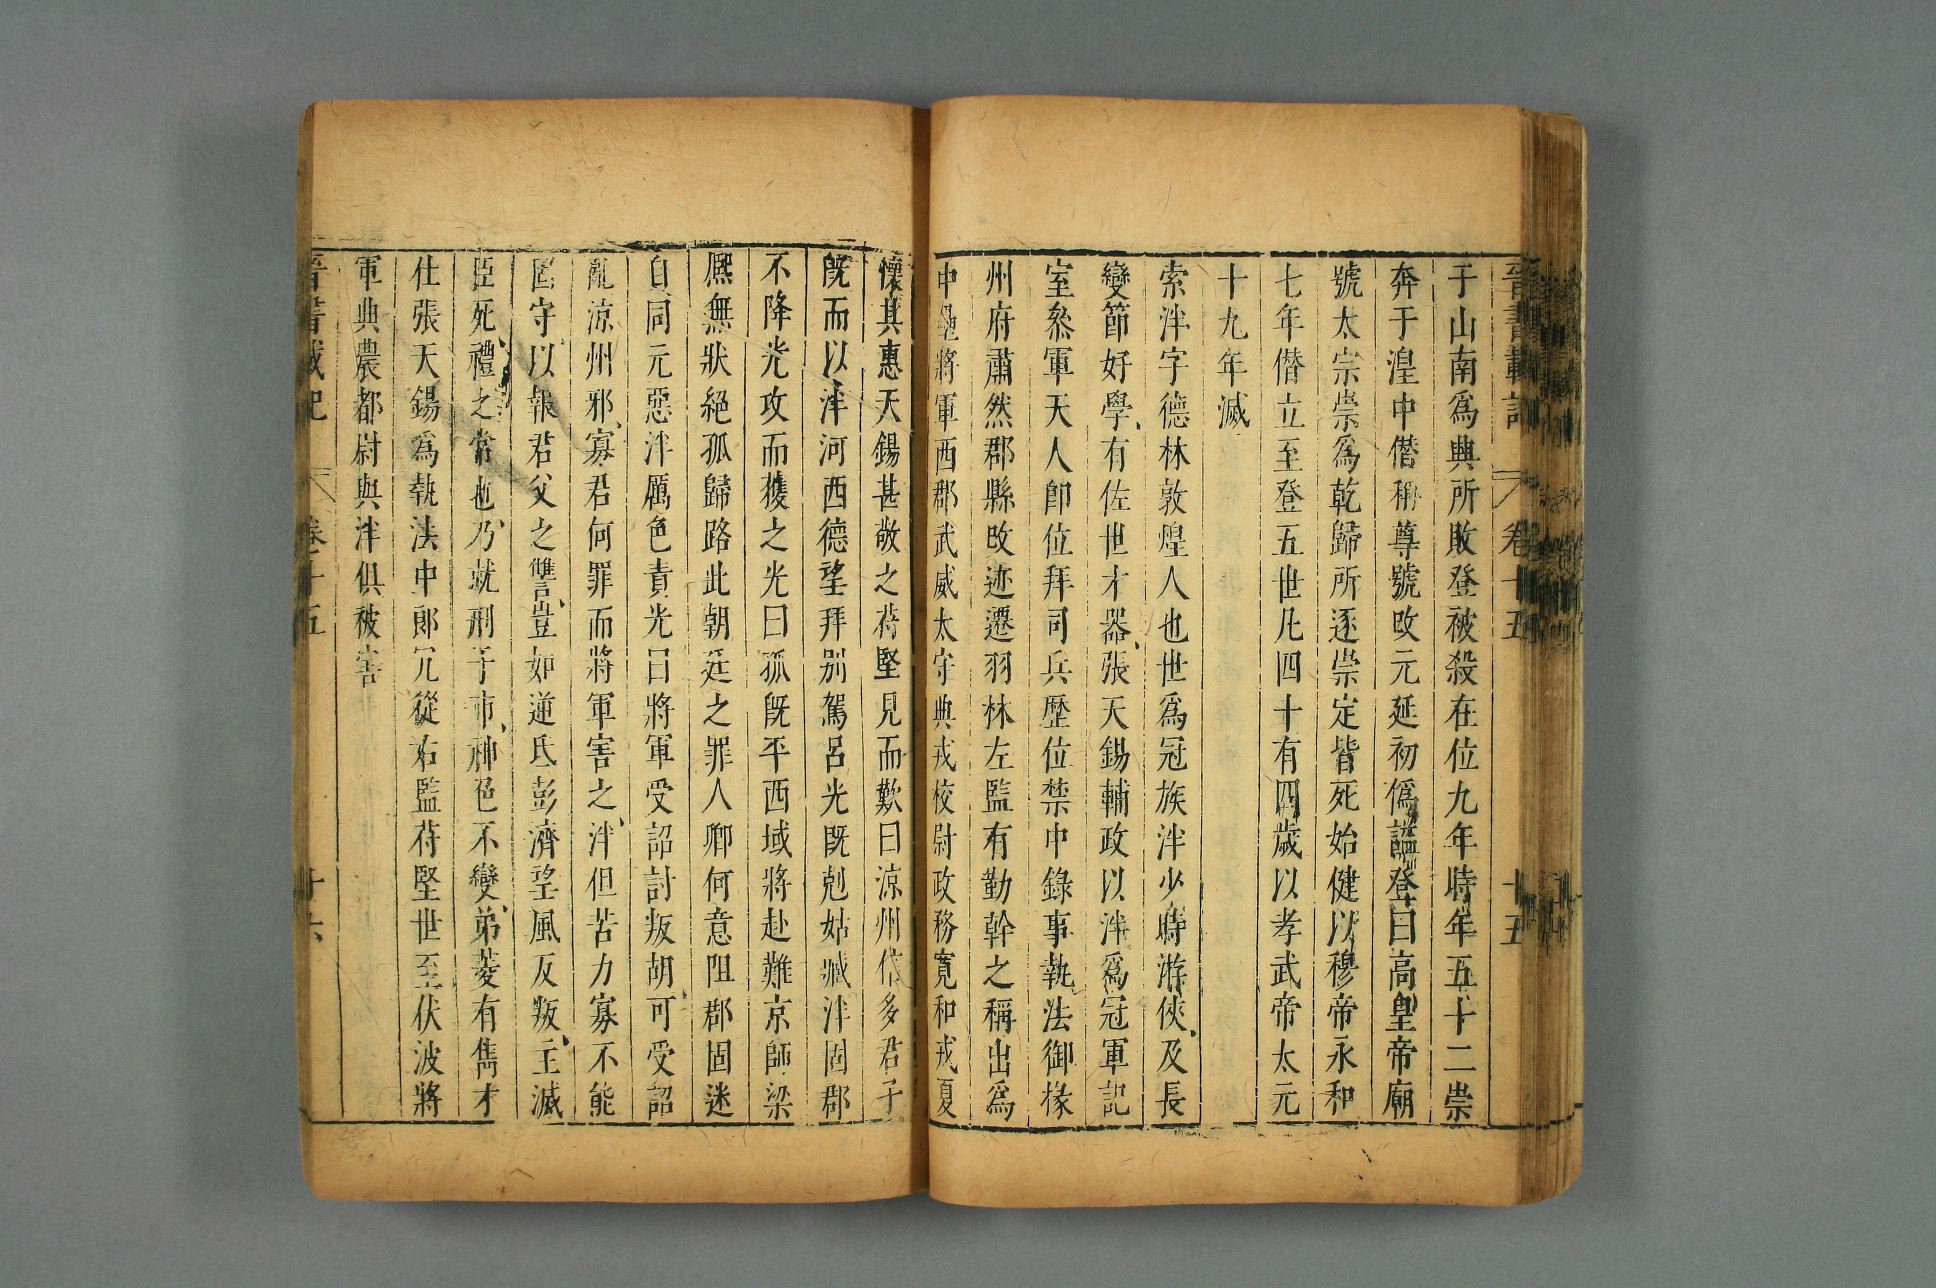 晉書載記 卷十五 十五
于山南爲典所敗登被殺在位九年時年五十二崇
奔于湟中僭稱尊號改元延初僞謚登曰高皇帝廟
號太宗崇爲乾歸所逐崇定皆死始健以穆帝永和
七年僭立至登五世凡四十有四歲以孝武帝太元
十九年滅
索泮字德林敦煌人也世爲冠族泮少時游俠及長
變節好學有佐世才器張天錫輔政以泮爲冠軍記
室叅軍天人卽位拜司兵歷位禁中錄事執法御掾
州府肅然郡縣改迹遷羽林左監有勤幹之稱出爲
中壘將軍西郡武威太守典戎校尉政務寬和戎夏
懷其惠天錫甚敬之苻堅見而歎曰涼州信多君子
旣而以泮河西德望拜別駕呂光旣剋姑臧泮固郡
不降光攻而獲之光曰孤旣平西域將赴難京師梁
熈無狀絕孤歸路此朝廷之罪人卿何意阻郡固迷
自同元惡泮厲色責光曰將軍受詔討叛胡可受詔
亂涼州邪寡君何罪而將軍害之泮但苦力寡不能
固守以報君父之讐豈如逆氐彭濟望風反叛主滅
臣死禮之常也乃就刑于市神色不變弟菱有儁才
仕張天錫爲執法中郎冗從右監苻堅世至伏波將
軍典農都尉與泮俱被害
晉書載記 卷十五 十六